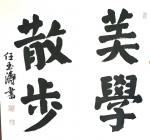 美學
散步
任玉濤書